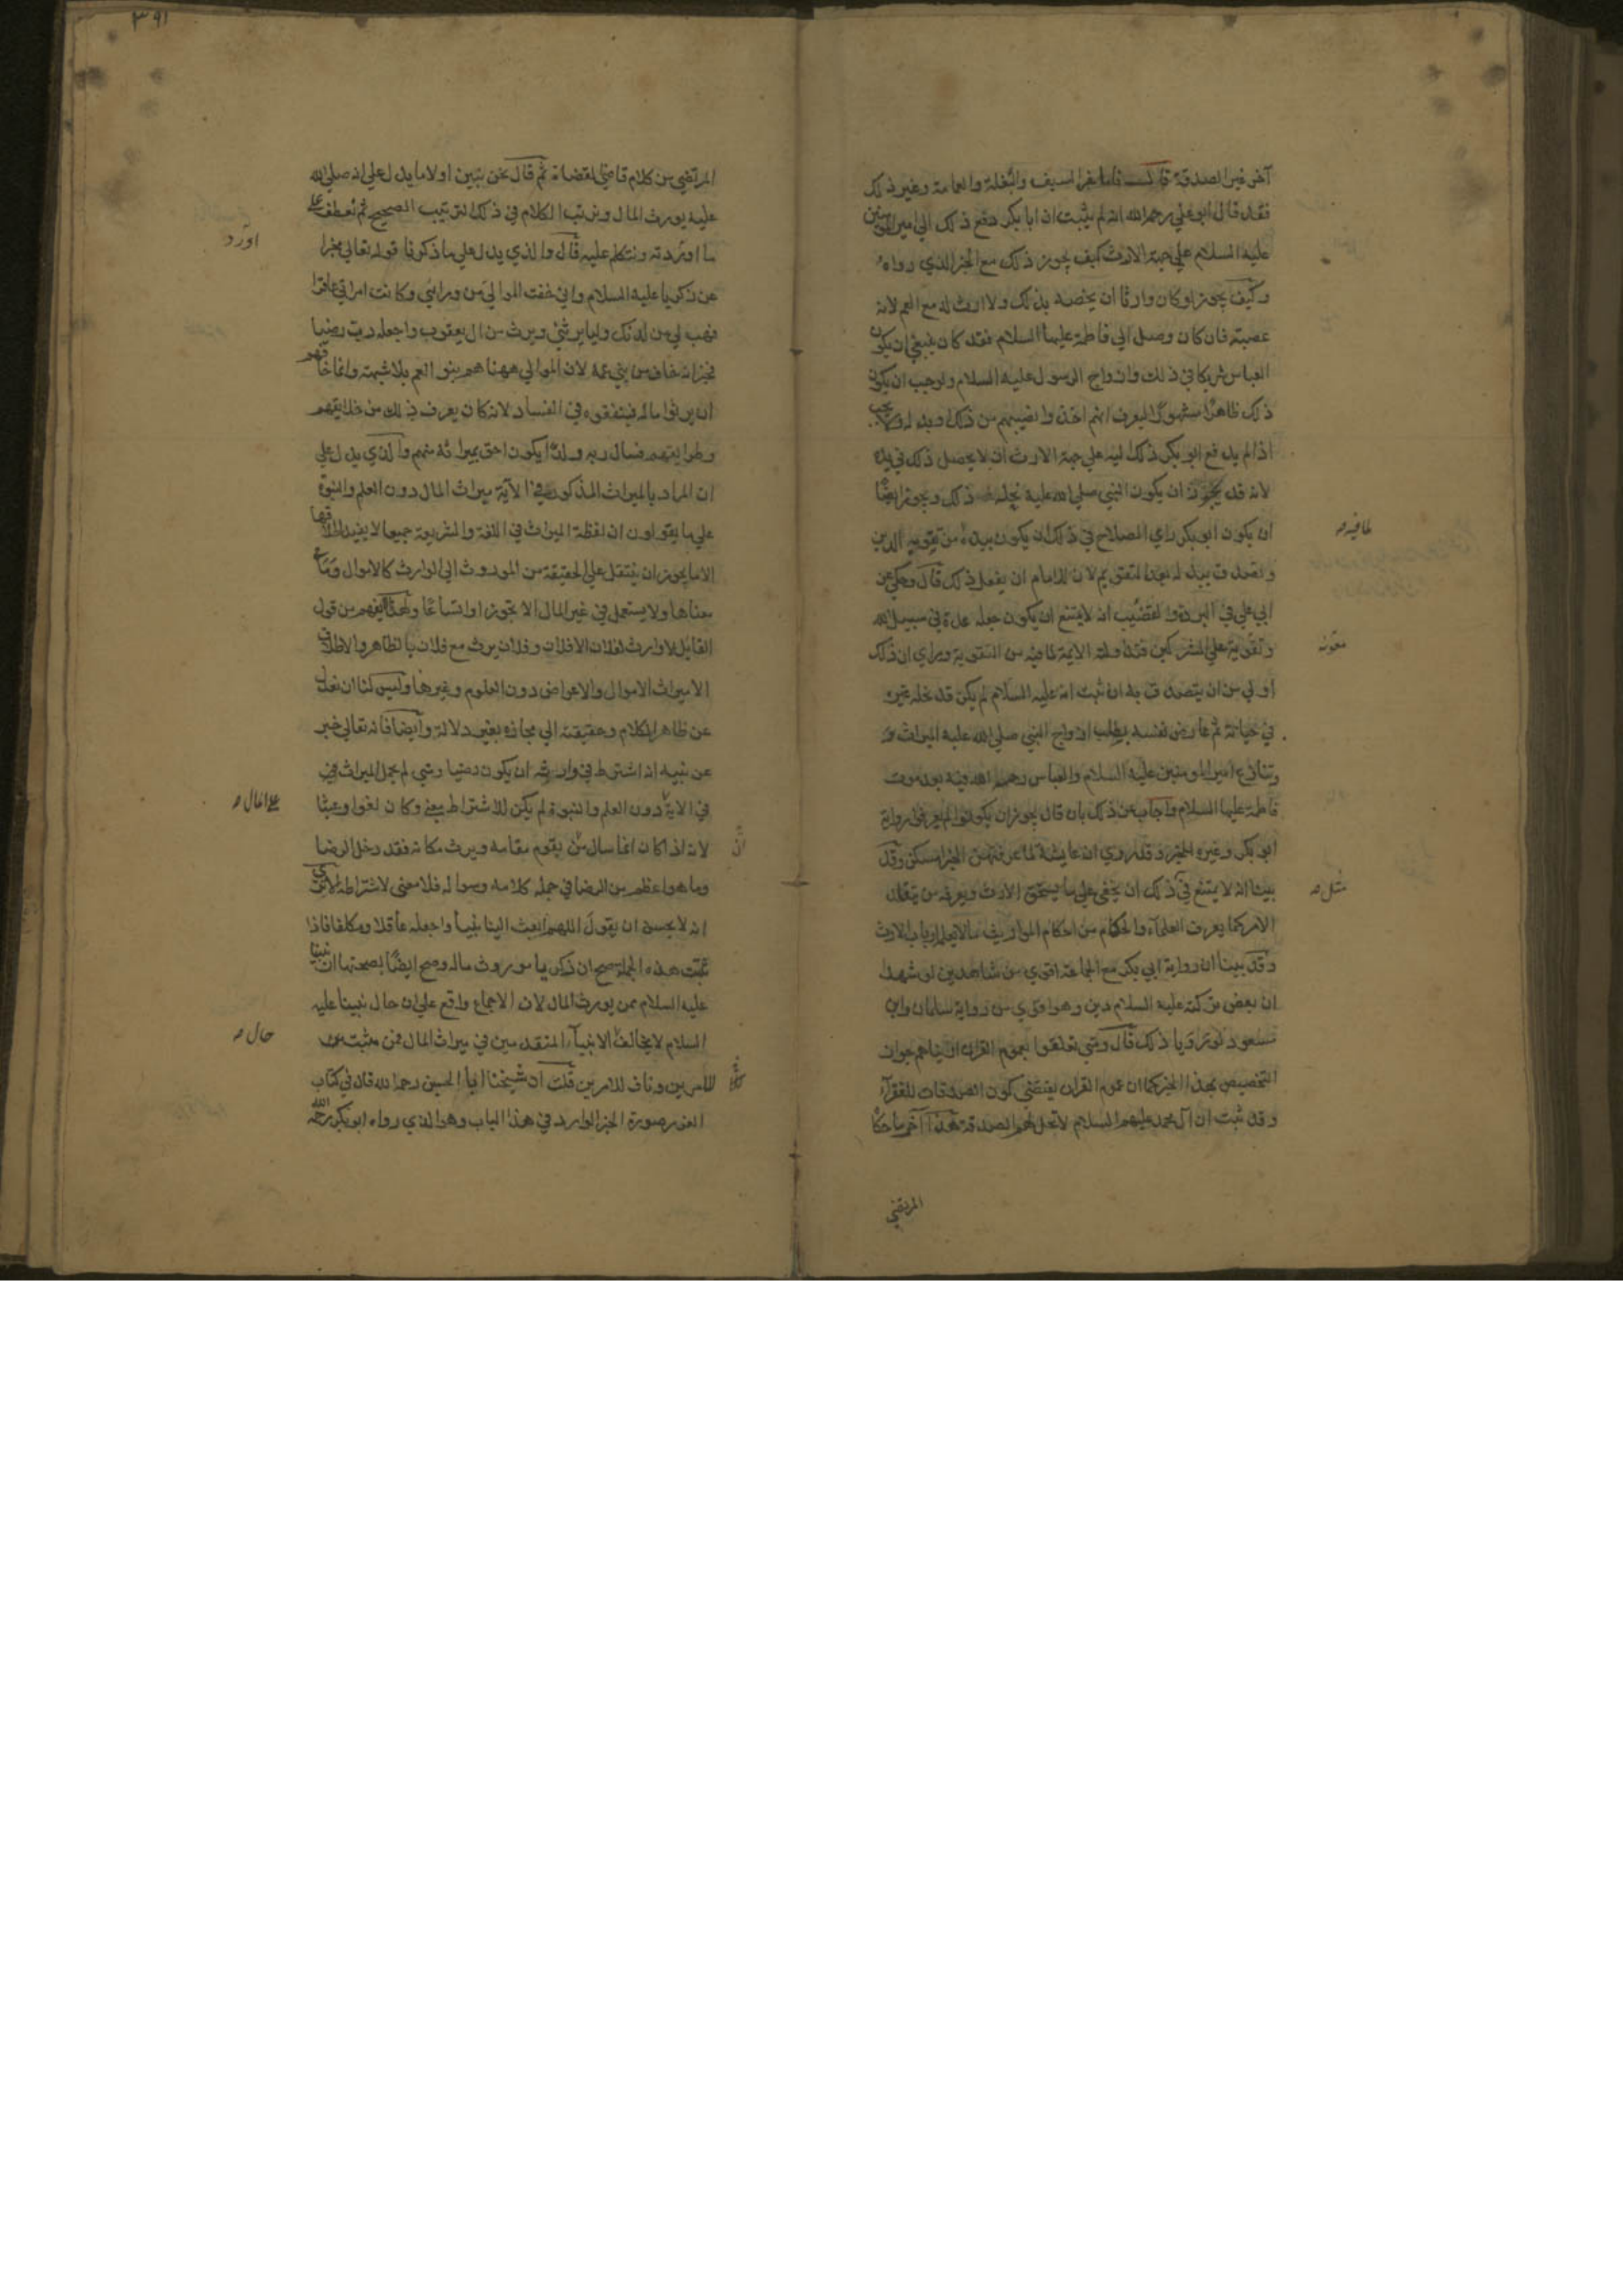 آخر غير الصدقة قال فاما خبر السيف والبغلة والعمامة وغير ذلك
فقد قال ابو علي رحمه الله انه لم يثبت ان ابا بكر دفع ذلك الي امير المومنين
عليه السلام علي جهة الارث كيف يجوز ذلك مع الخبر الذي رواه
وكيف يجوز لو كان وارثا ان يخصه بذلك ولا ارث له مع العم لانه
عصبة فان كان وصل الي فاطمة عليها السلام فقد كان ينبغي ان يكون
العباس شريكا في ذلك وازواج الرسول عليه السلام ولوجب ان يكون
ذلك ظاهرا مشهورا ليعرف انهم اخذوا نصيبهم من ذلك او بدله ولا يجب
اذا لم يدفع ابو بكر ذلك اليه علي جهة الارث ان لا يحصل ذلك في يده
لانه قد يجوز ان يكون النبي صلي الله عليه نحله ذلك ويجوز ايضا
ان يكون ابو بكر راي الصلاح في ذلك ان يكون بيده من تقوية الدين
لما فيه
وتصدق ببدله بعد التقويم لان للامام ان يفعل ذلك قال وحكي عن
ابي علي في البردة والقضيب انه لا يمتنع ان يكون جعله عدة في سبيل الله
وتقوية علي المشركين فتداولته الايمة لما فيه من التقوية وراي ان ذلك
معونه
اولي من ان يتصدق به ان ثبت انه عليه السلام لم يكن قد نحله غيره
في حياته ثم عارض نفسه بطلب ازواج النبي صلي الله عليه الميراث
وتنازع امير المومنين عليه السلام والعباس رحمه الله فيه بعد موت
فاطمة عليها السلام واجاب عن ذلك بان قال يجوز ان يكونوا لم يعرفوا رواية
ابو بكر وغيره الخبر وقد روي ان عايشة لما عرفتهن الخبر امسكن وقد
بينا انه لا يمتنع في ذلك ان يخفي علي من يستحق الارث ويعرفه من يتقلد
مثل
الامر كما يعرف العلماء والحكام من احكام المواريث ما لا يعلم ارباب الارث
وقد بينا ان رواية ابي بكر مع الجماعة اقوي من شاهدين لو شهدا
ان بعض تركته عليه السلام دين وهو اقوي من رواية سلمان وابن
مسعود لو رويا ذلك قال ومتي تعلقوا بعموم القران اريناهم جواز
التخصيص بهذا الخبر كما ان عموم القران يقتضي كون الصدقات للفقراء
وقد ثبت ان آل محمد عليهم السلام لا تحل لهم الصدقة هذا آخر ما حكا
المرتضي
٣٩١
المرتضي من كلام قاضي القضاة ثم قال نحن نبين اولا ما يدل علي انه صلي الله
عليه يورث المال ونرتب الكلام في ذلك الترتيب الصحيح ثم نعطف علي
ما اوردته ونتكلم عليه قال والذي يدل علي ما ذكرنا قوله تعالي مخبرا
اورد
عن زكريا عليه السلام واني خفت الموالي من ورائي وكانت امراتي عاقرا
فهب لي من لدنك وليا يرثني ويرث من ال يعقوب واجعله رب رضيا
فخبر انه خاف من بني عمه لان الموالي ههنا هم بنو العم بلا شبهة وانما خافهم
ان يرثوا ماله فينفقوه في الفساد لانه كان يعرف ذلك من خلايقهم
وطرايقهم فسال ربه ولدا يكون احق بميراثه منهم والذي يدل علي
ان المراد بالميراث المذكور في الآية ميراث المال دون العلم والنبوة
علي ما يقولون ان لفظة الميراث في اللغة والشريعة جميعا لا يفيد اطلاقها
الا ما يجوز ان ينتقل علي الحقيقة من الموروث الي الوارث كالاموال وما في
معناها ولا يستعمل في غير المال الا تجوزا واتساعا ولهذا لا يفهم من قول
القايل لا وارث لفلان الا فلان وفلان يرث مع فلان بالظاهر والاطلاق
الا ميراث الاموال والاعراض دون العلوم وغيرها وليس لنا ان نعدل
عن ظاهر الكلام وحقيقته الي مجازه بغير دلالة وايضا فانه تعالي خبر
عن نبيه انه اشترط في وارثه ان يكون رضيا ومتي لم يحمل الميراث في
في الاية دون العلم والنبوة لم يكن للاشتراط معني وكان لغوا وعبثا
علي المال
لانه اذا كان انما سال من يقوم مقامه ويرث مكانه فقد دخل الرضا
ان
وما هو اعظم من الرضا في جملة كلامه وسواله فلا معني لاشتراطه الا تري
انه لا يحسن ان يقول اللهم ابعث الينا نبيا واجعله عاقلا ومكلفا فاذا
ثبتت هذه الجملة صح ان زكريا موروث ماله وصح ايضا بصحتها ان نبينا
عليه السلام ممن يورث المال لان الاجماع واقع علي ان حال نبينا عليه
السلام لا يخالف الانبياء المتقدمين في ميراث المال فمن مثبت
حال
للامرين وناف للامرين قلت ان شيخنا ابا الحسين رحمه الله قال في كتاب
الغرر صورة الخبر الوارد في هذا الباب وهو الذي رواه ابو بكر رحمه الله